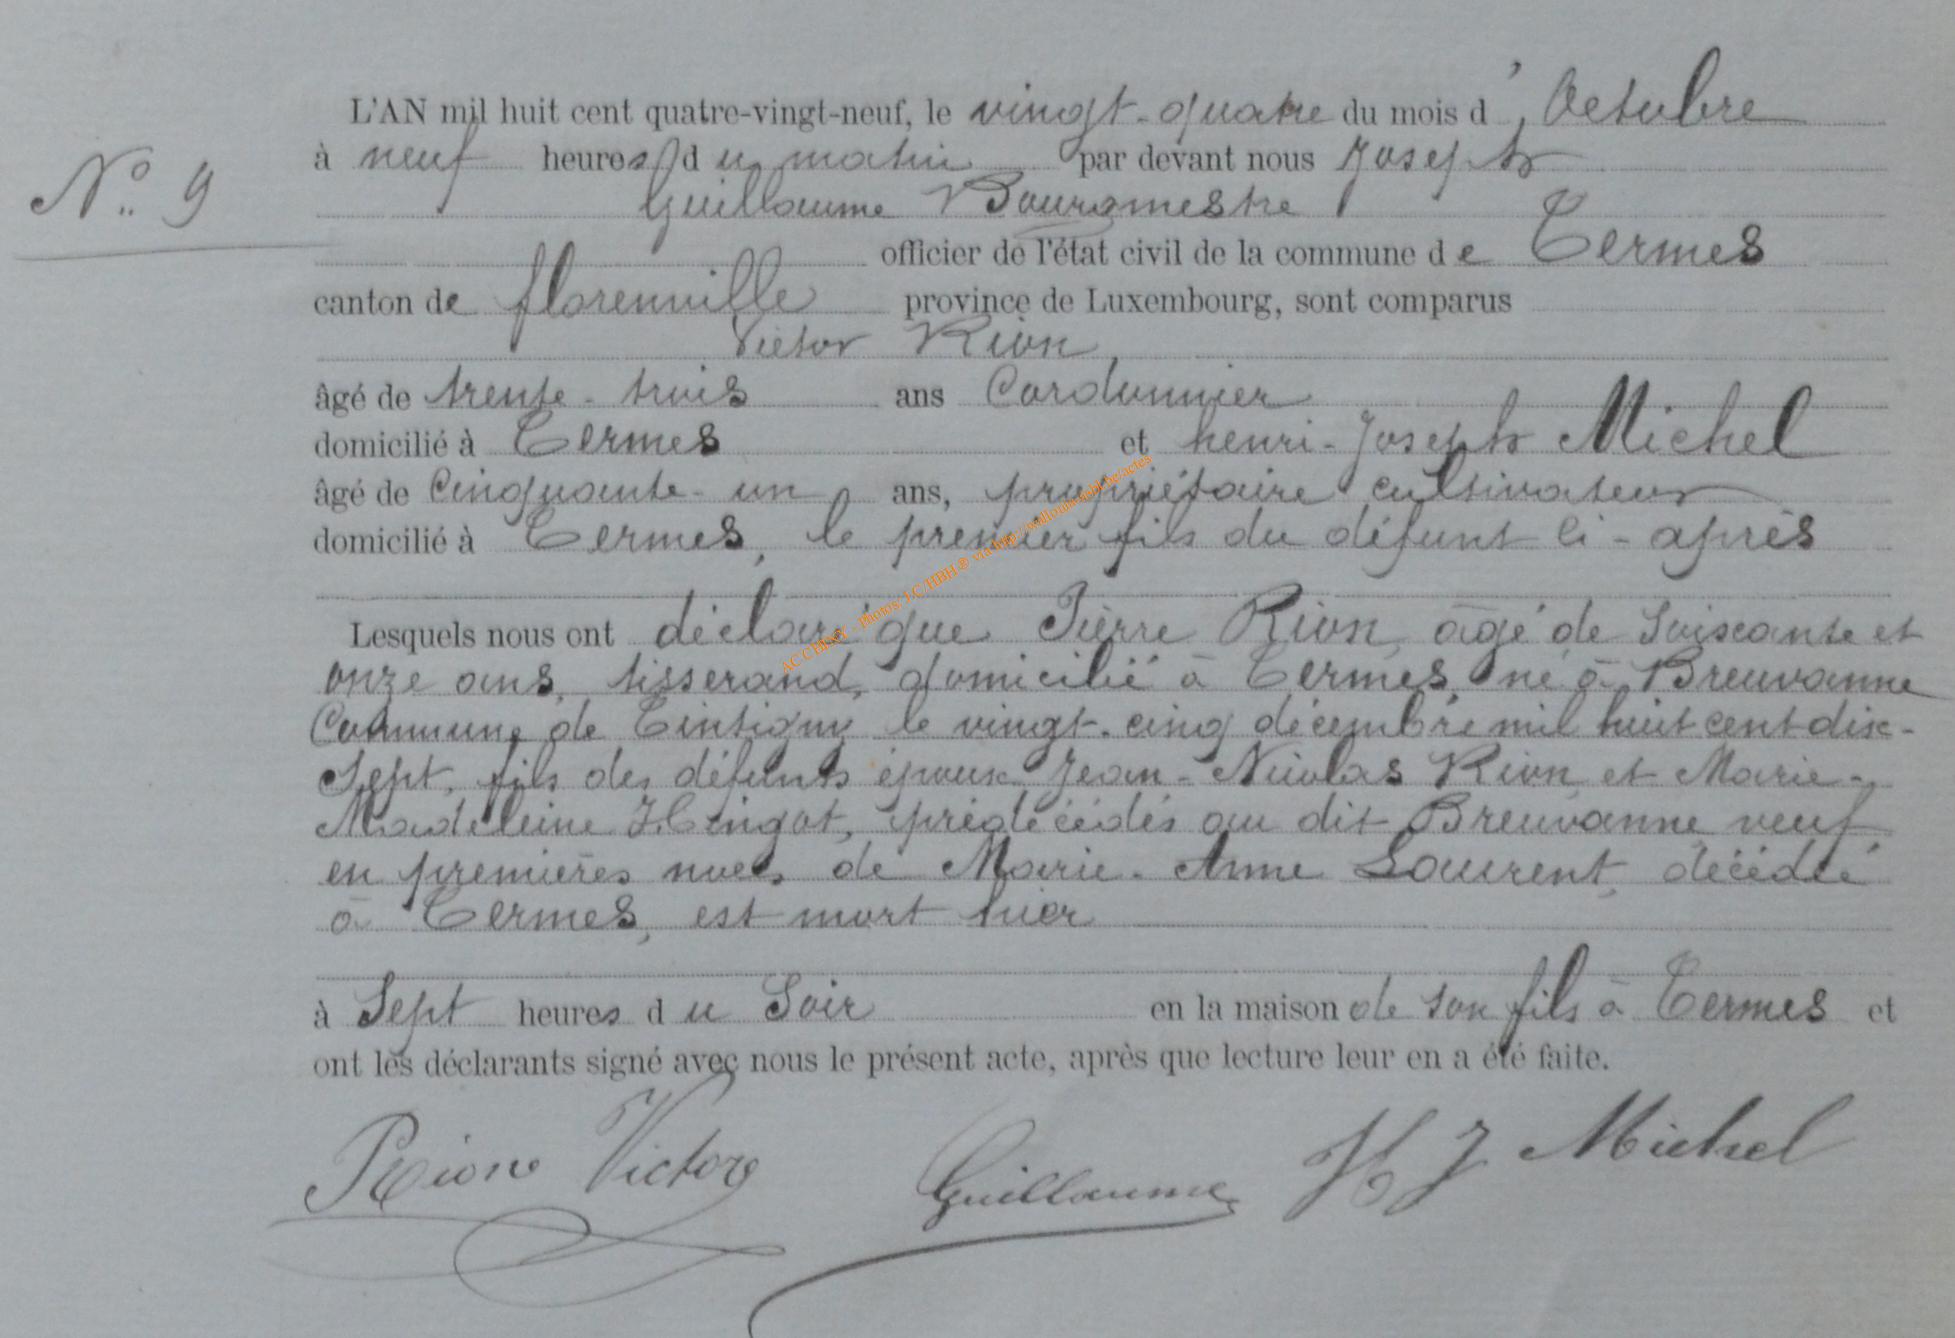 L'AN mil huit cent quatre-vingt-neuf, le vingt-quatre du mois d'Octobre
N° 9
à neuf heures du matin par devant nous Joseph
Guillaume Bourgmestre
officier de l'état civil de la commune de Termes
canton de florenville province de Luxembourg, sont comparus
Victor Rion,
âgé de trente-trois ans Cordonnier
domicilié à Termes et henri-Joseph Michel
âgé de Cinquante-un ans, propriétaire cultivateur
domicilié à Termes, le premier fils du défunt ci-après
Lesquels nous ont déclaré que Pierre Rion, âgé de Soixante et
onze ans, tisserand, domicilié à Termes, né à Breuvanne
Commune de Tintigny le vingt-cinq décembre mil huit cent dix-
Sept, fils des défunts époux Jean-Nicolas Rion et Marie-
Madeleine, prédécédés au dit Breuvanne veuf
en premières noces de Marie-Anne Laurent, décédée
à Termes, est mort hier
à Sept heures du Soir en la maison de son fils à Termes et
ont les déclarants signé avec nous le présent acte, après que lecture leur en a été faite.
Rion Victor Guillaume H J Michel
AC CHINY - Photos: J.C. HBH ® via http://wallonia-asbl.be/actes